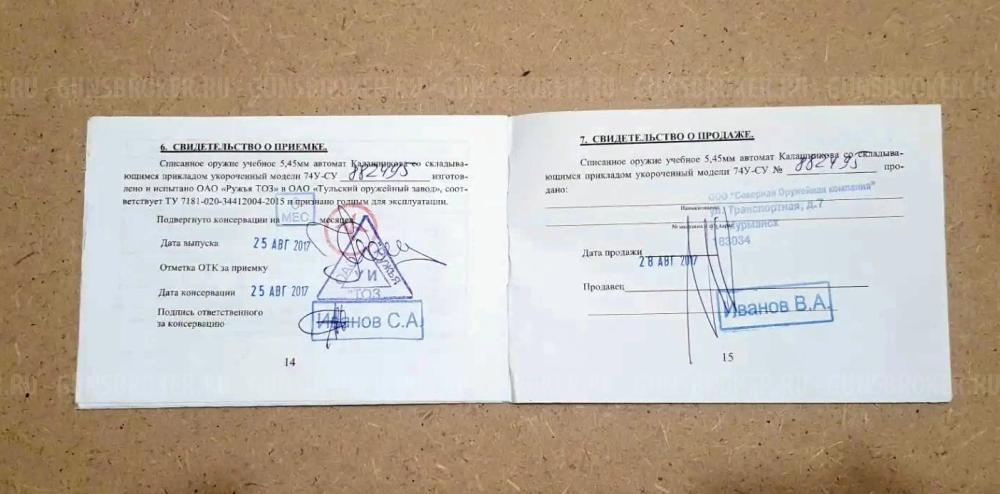 6. СВИДЕТЕЛЬСТВО О ПРИЕМКЕ.
Списанное оружие учебное 5,45мм автомат Калашникова со складыва-
ющимся прикладом укороченный модели 74У-СУ 882495 изготов-
лено и испытано ОАО «Ружья ТОЗ» в ОАО «Тульский оружейный завод», соот-
ветствует ТУ 7181-020-34412004-2015 и признано годным для эксплуатации.
Подвергнуто консервации на 6 МЕС. месяцев
Дата выпуска 25 АВГ 2017
Отметка ОТК за приемку
ОАО РУЖЬЯ ТОЗ
У И
Дата консервации 25 АВГ 2017
Подпись ответственного
за консервацию
Иванов С.А.
14
7. СВИДЕТЕЛЬСТВО О ПРОДАЖЕ.
Списанное оружие учебное 5,45мм автомат Калашникова со складыва-
ющимся прикладом укороченный модели 74У-СУ № 882495 про-
дано:
ООО "Северная Оружейная компания"
ул. Транспортная, д.7
Мурманск
183034
Дата продажи 28 АВГ 2017
Продавец
Иванов В.А.
15
GUNSBROKER.RU